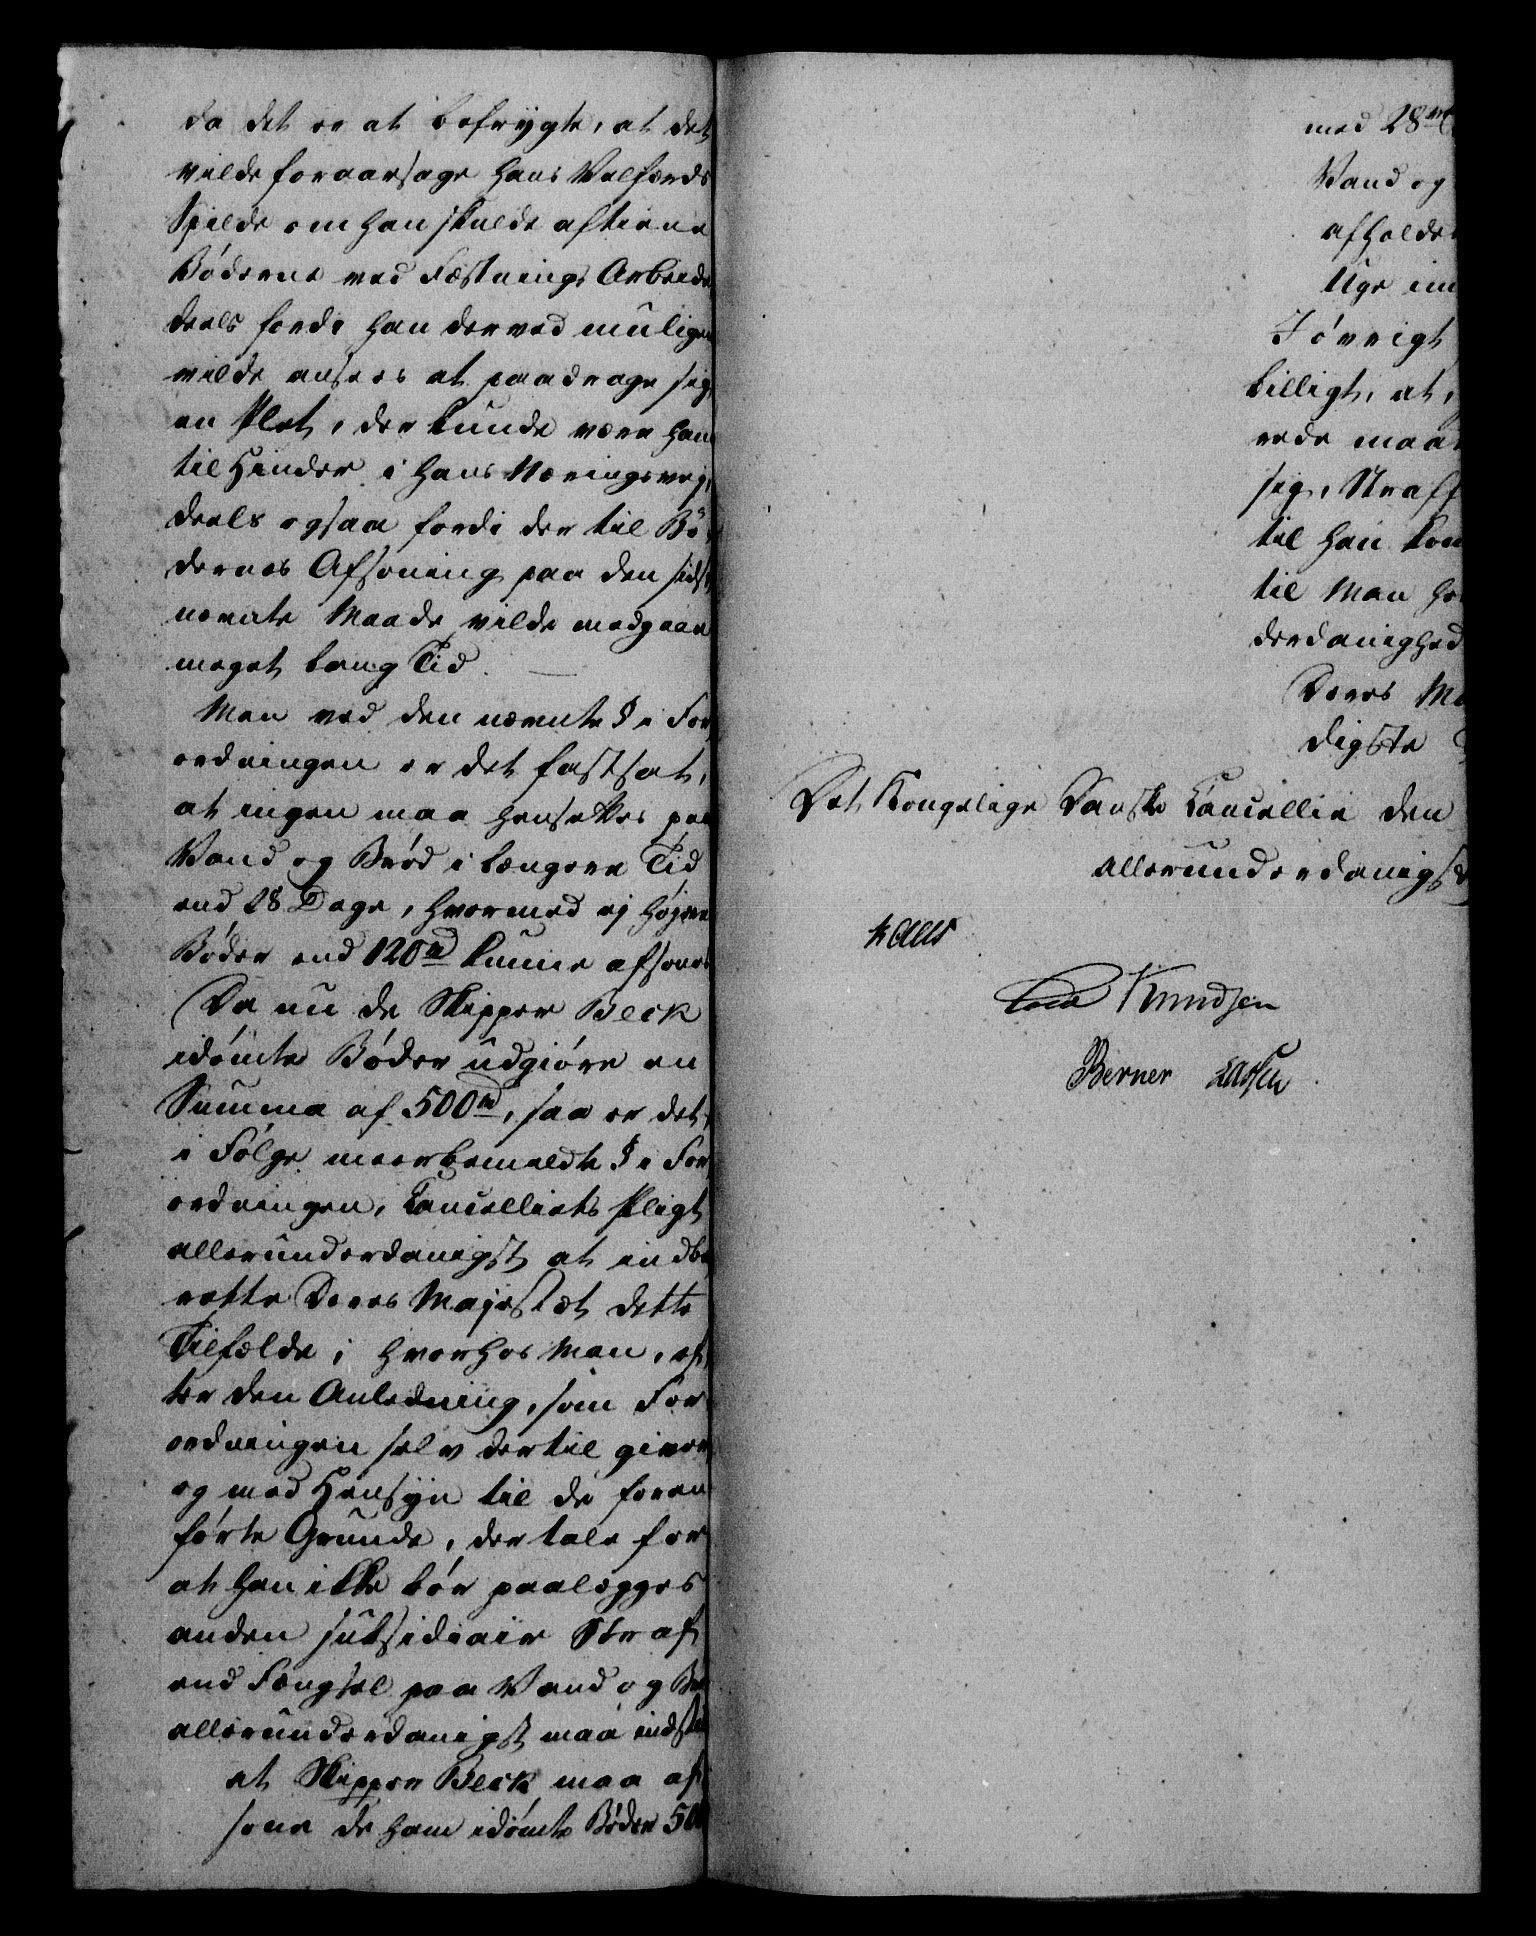 da det er at befrygte, at det
vilde foraarsage hans Velfærds
Spilde om han skulde aftiene
Bøderne ved Fæstnings Arbeide
deels fordi han derved muligen
vilde ansees at paadrage sig
en Plet, der kunde være ham
til Hinder i hans Næringsvej,
deels ogsaa fordi der til Bø-
dernes Afsoning paa den sidst
nævnte Maade vilde medgaae
meget lang Tid.
Men ved den nævnte § i For
ordningen er det fastsat,
at ingen maa hensættes paa
Vand og Brød i længere Tid
end 28 Dage, hvormed ej højere
Bøder end 120 rd kunne afsones
Da nu de Skipper Beck
idømte Bøder udgiøre en
Summa af 500 rd, saa er det,
i Følge meerbemeldte § i For
ordningen, Cancelliets Pligt
allerunderdanigst at indbe
rette Deres Majestæt dette
Tilfælde, hvorhos Man, ef
ter den Anledning, som For
ordningen selv dertil giver
og med Hensyn til de foran
førte Grunde, der tale for
at han ikke bør paalægges
anden subsidiair Straf
end Fængsel paa Vand og Brø
allerunderdanigst maa indstil
at Skipper Beck maa af
sone de ham idømte Bøder 500
med 28
Vand og
afholde
Uge im
Iøvrigt
billigt, at,
rede maa
sig, Straff
til han kom
til Man he
derdanighed
Deres Ma
digste
Det Kongelige Danske Cancellie den
allerunderdanigst
Kaas
Knudsen
Berner Lassen